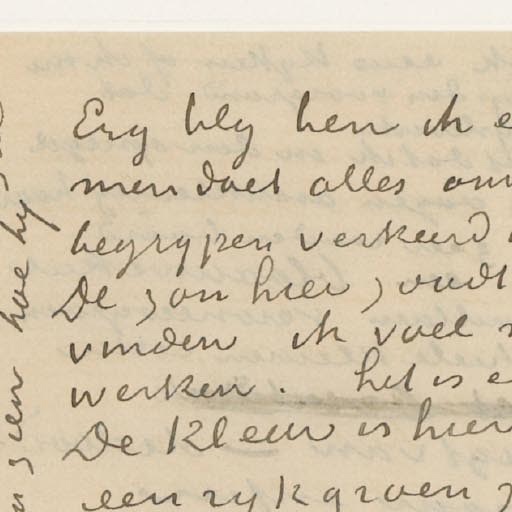 Erg bly ben ik e
men doet alles om
begrypen verkeerd
De zon hier, zoudt
vinden ik voel
werken. het is e
De kleur is hier
een ryk groen
zien hoe hy